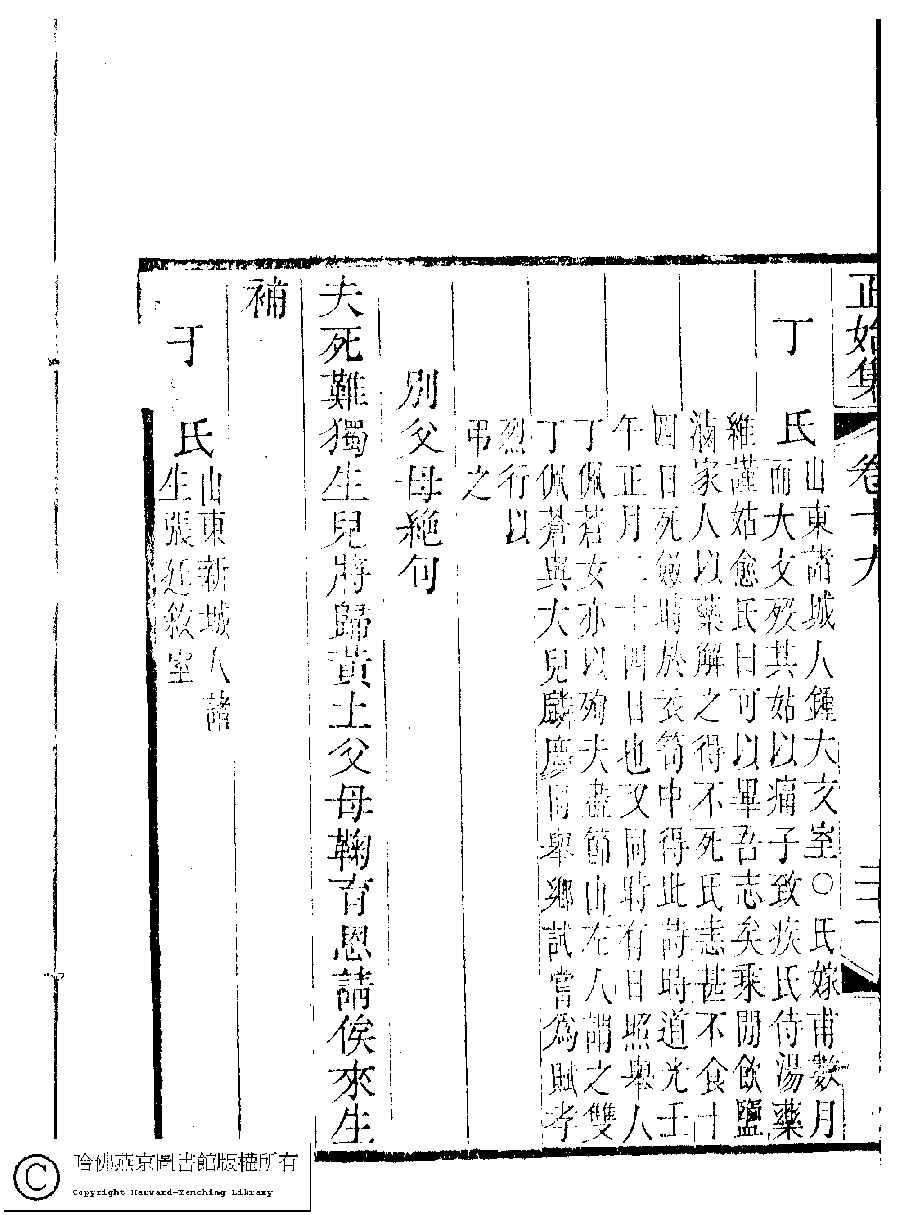 正始集 卷十九
丁氏
山東諸城人鍾大文室○氏嫁甫數月
而大文歿其姑以痛子致疾氏侍湯藥
維謹姑愈氏曰可以畢吾志矣乘間飲鹽
滷家人以藥解之得不死氏志甚不食十
四日死斂時於衣笥中得此詩時道光壬
午正月二十四日也又同時有日照舉人
丁佩蒼女亦以殉夫盡節山左人謂之雙
丁佩蒼與大兒麟慶同舉鄉試嘗為賦孝
烈行以
弔之
別父母絕句
夫死難獨生兒將歸黃土父母鞠育恩請俟來生
補
于氏
山東新城人諸
生張廷敘室
哈佛燕京圖書館版權所有
Copyright Harvard-Yenching Library